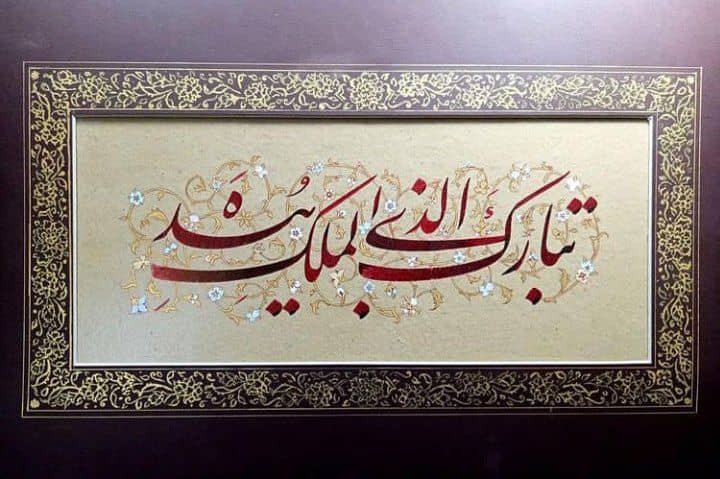 تبارکَ الذی بیده الملک